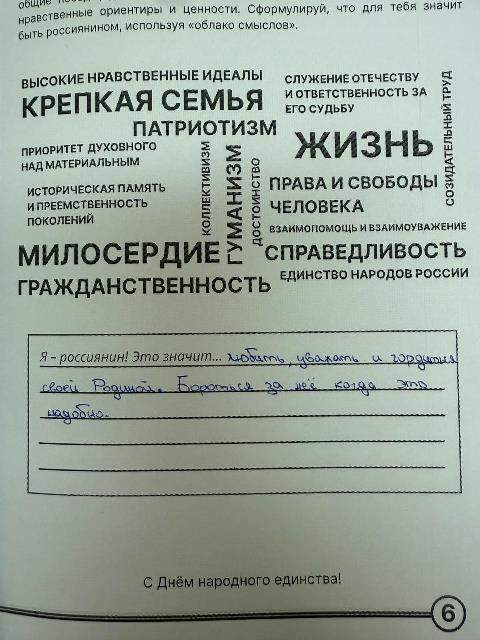 нравственные ориентиры и ценности. Сформулируй, что для тебя значит
быть россиянином, используя «облако смыслов».
ВЫСОКИЕ НРАВСТВЕННЫЕ ИДЕАЛЫ
СЛУЖЕНИЕ ОТЕЧЕСТВУ
И ОТВЕТСТВЕННОСТЬ ЗА
ЕГО СУДЬБУ
КРЕПКАЯ СЕМЬЯ
ПАТРИОТИЗМ
СОЗИДАТЕЛЬНЫЙ ТРУД
ЖИЗНЬ
ПРИОРИТЕТ ДУХОВНОГО
НАД МАТЕРИАЛЬНЫМ
КОЛЛЕКТИВИЗМ
ГУМАНИЗМ
ДОСТОИНСТВО
ИСТОРИЧЕСКАЯ ПАМЯТЬ
И ПРЕЕМСТВЕННОСТЬ
ПОКОЛЕНИЙ
ПРАВА И СВОБОДЫ
ЧЕЛОВЕКА
ВЗАИМОПОМОЩЬ И ВЗАИМОУВАЖЕНИЕ
МИЛОСЕРДИЕ
СПРАВЕДЛИВОСТЬ
ГРАЖДАНСТВЕННОСТЬ
ЕДИНСТВО НАРОДОВ РОССИИ
Я – россиянин! Это значит... любить, уважать и гордиться
своей Родиной. Бороться за неё когда это
надобно.
С Днём народного единства!
6